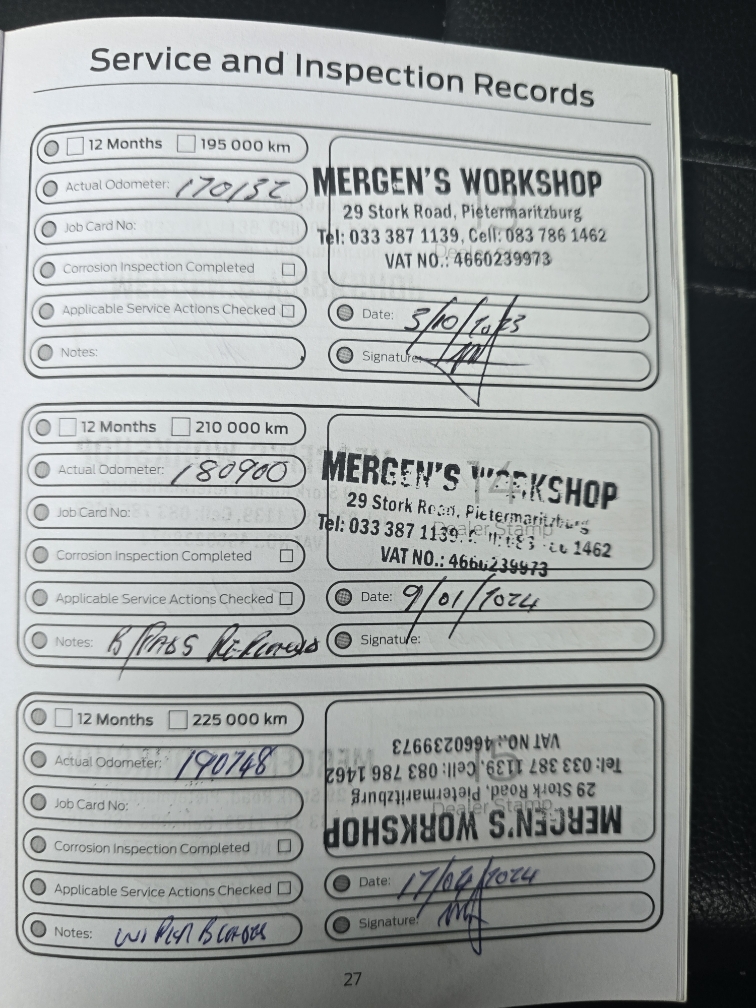 Service and Inspection Records
12 Months 195 000 km
Actual Odometer: 170132
Job Card No:
Corrosion Inspection Completed
Applicable Service Actions Checked
Notes:
MERGEN'S WORKSHOP
29 Stork Road, Pietermaritzburg
Tel: 033 387 1139, Cell: 083 786 1462
Dealer Stamp
VAT NO.: 4660239973
Date: 3/10/2023
Signature:
12 Months 210 000 km
Actual Odometer: 180900
Job Card No:
Corrosion Inspection Completed
Applicable Service Actions Checked
Notes: B/PADS
14
MERGEN'S WORKSHOP
29 Stork Road, Pietermaritzburg
Tel: 033 387 1139, 1462
Dealer Stamp
VAT NO.: 4660239973
Date: 9/01/2024
Signature:
12 Months 225 000 km
Actual Odometer: 190748
Job Card No:
Corrosion Inspection Completed
Applicable Service Actions Checked
Notes: WIPER BLADES
15
MERGEN'S WORKSHOP
29 Stork Road, Pietermaritzburg
Tel: 033 387 1139, Cell: 083 786 1462
VAT NO.: 4660239973
Dealer Stamp
Date: 17/04/2024
Signature:
27